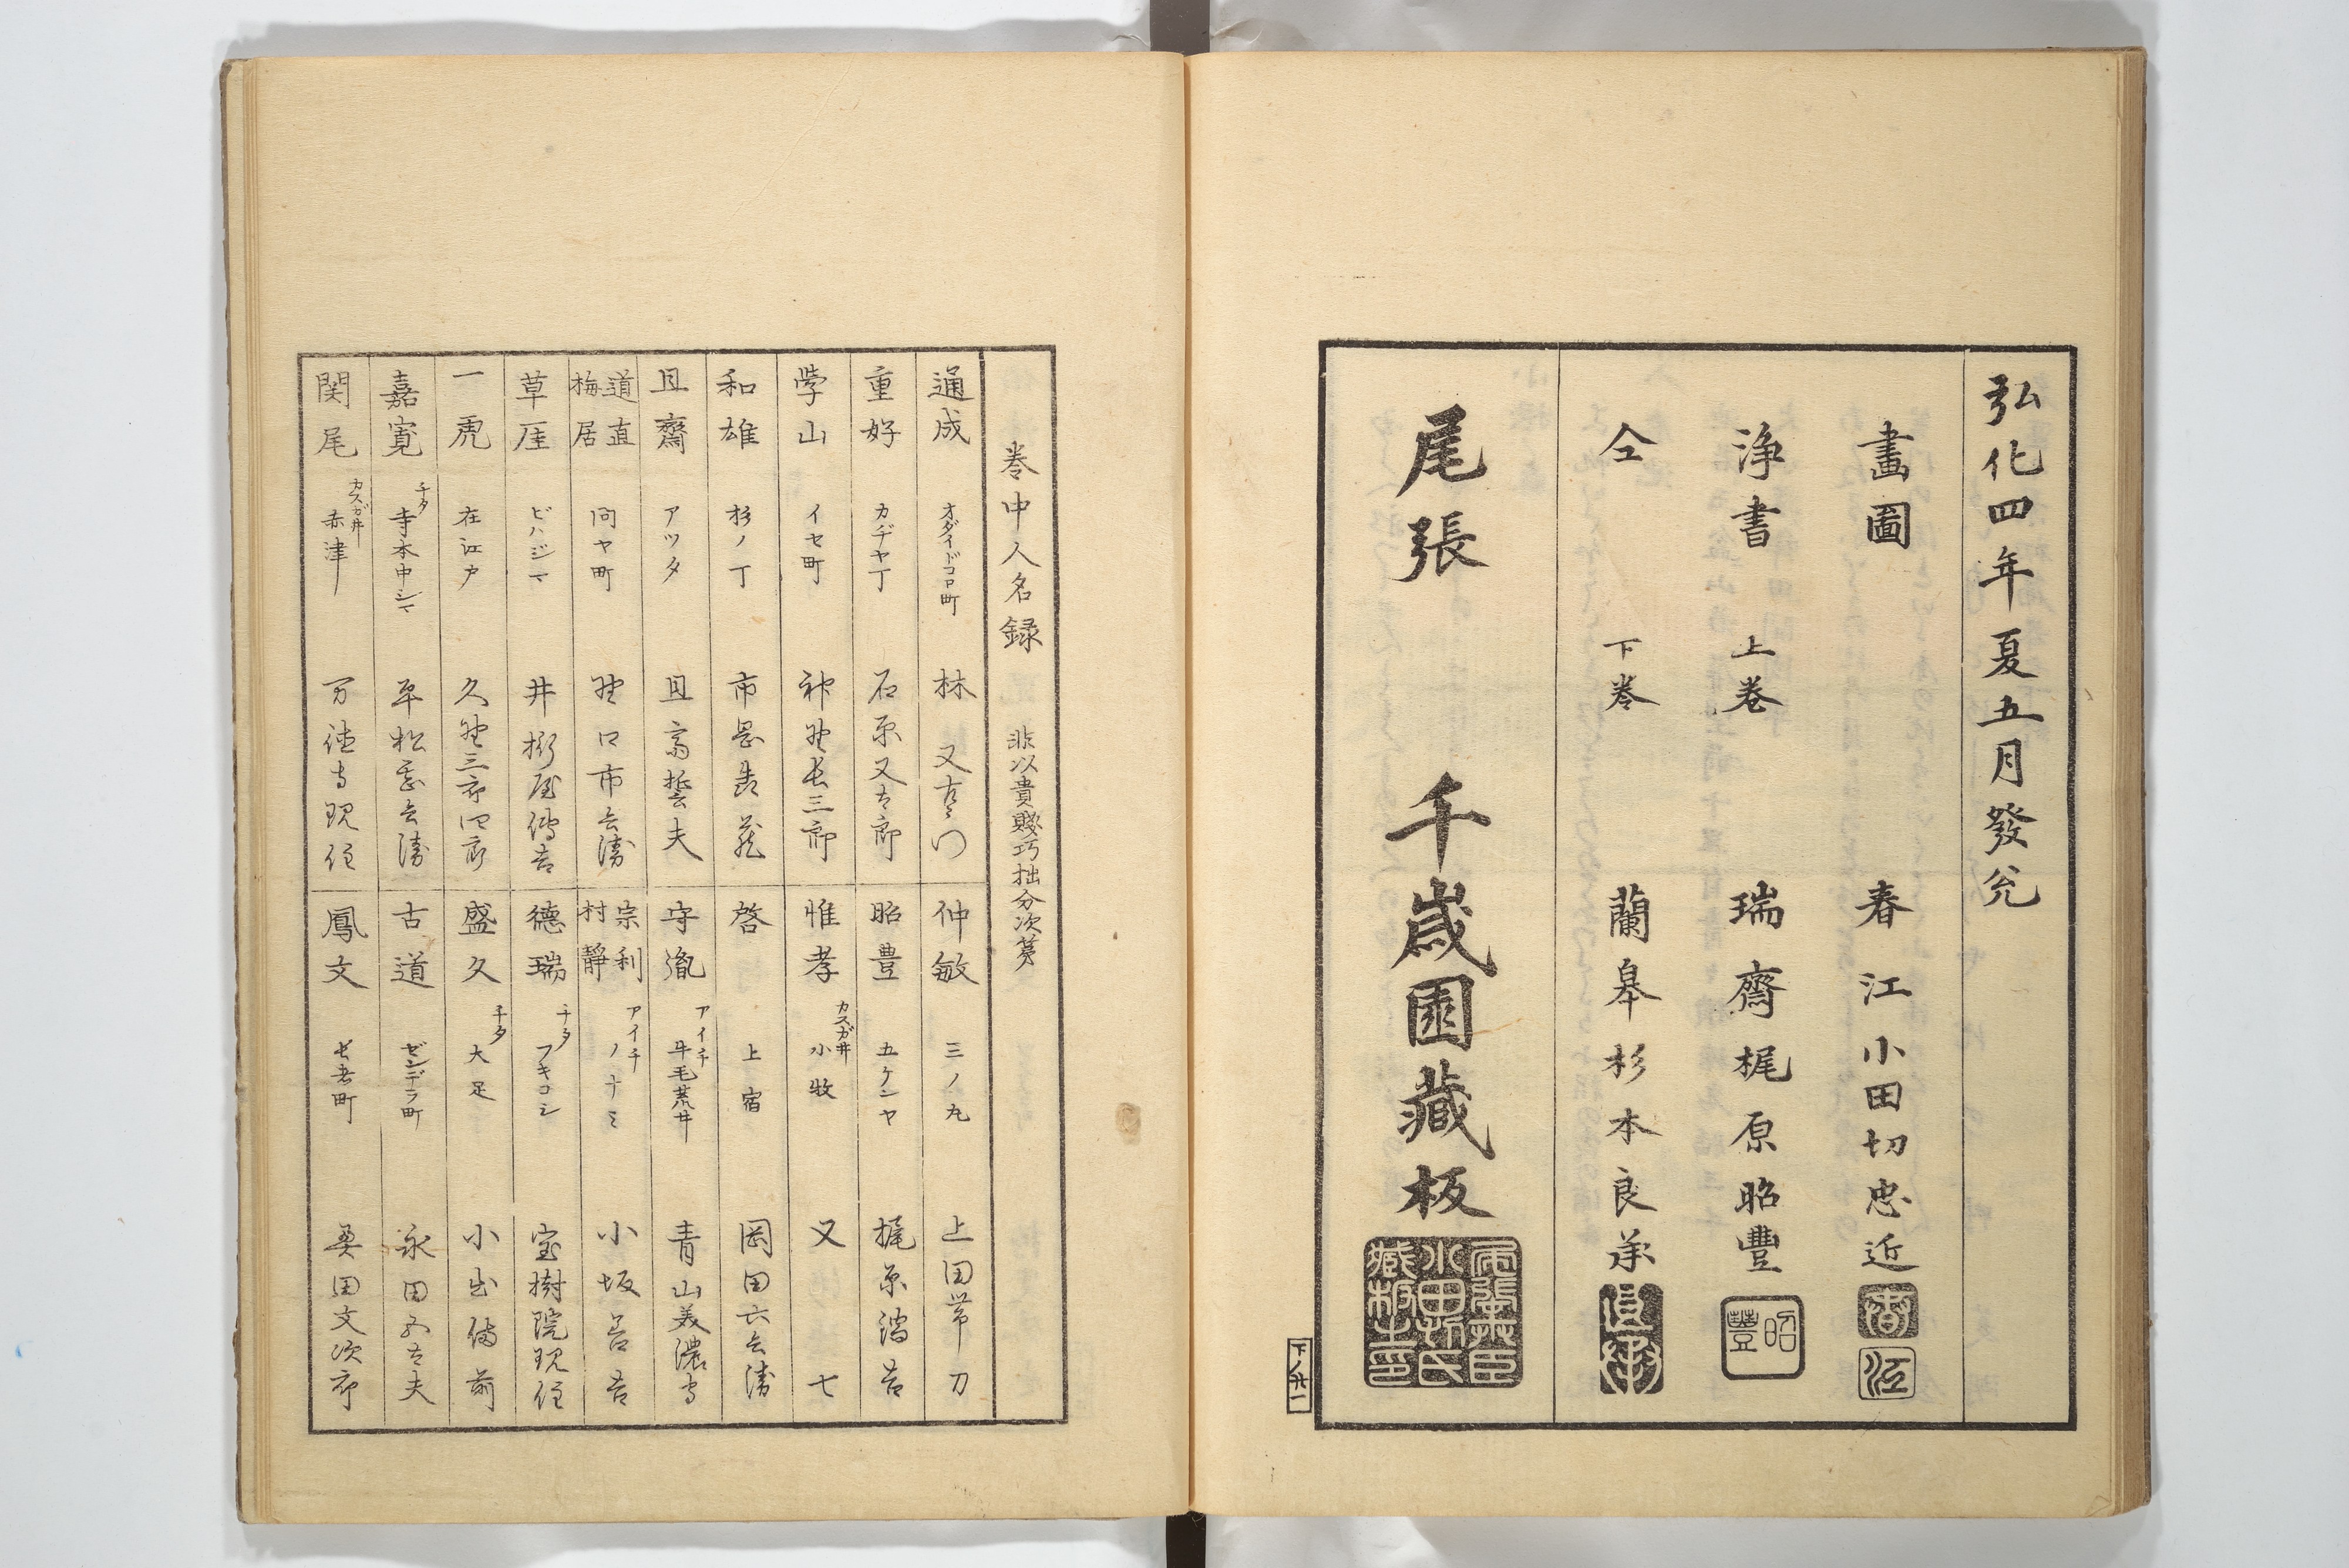 弘化四年夏五月發兌
畫圖 春江小田切忠近
春江
浄書 上巻 瑞齋梶原昭豐
昭豐
仝 下巻 蘭皐杉本良承
良承
尾張 千歳園藏板
下ノ廿一
巻中人名録 非以貴賤巧拙分次第
通成 オダイドコロ町 林又左門
重好 カヂヤ丁 石原又太郎
学山 イセ町 神野長三郎
和雄 杉ノ丁 市岡
且齋 アツタ 且斎誓夫
道直 梅居 问ヤ町 野口市兵衛
草厓 ビハジマ 井桁屋傳吉
一虎 在江戸 久野三郎四郎
嘉寛 チタ 寺本中シマ 平松甚兵衛
関尾 カスガ井 赤津 万徳寺現住
仲敏 三ノ丸 上田帯刀
昭豊 五ケシヤ 梶原
惟孝 カスガ井 小牧 又七
啓 上宿 岡田六兵衛
守胤 アイチ 牛毛荒井 青山美濃守
宗利 村静 アイチ ノナミ 小坂吾吉
德瑞 チタ フキコシ 宝樹院現住
盛久 チタ 大足 小出備前
古道 ゼンデラ町 永田五太夫
鳳文 長者町 奥田文次郎